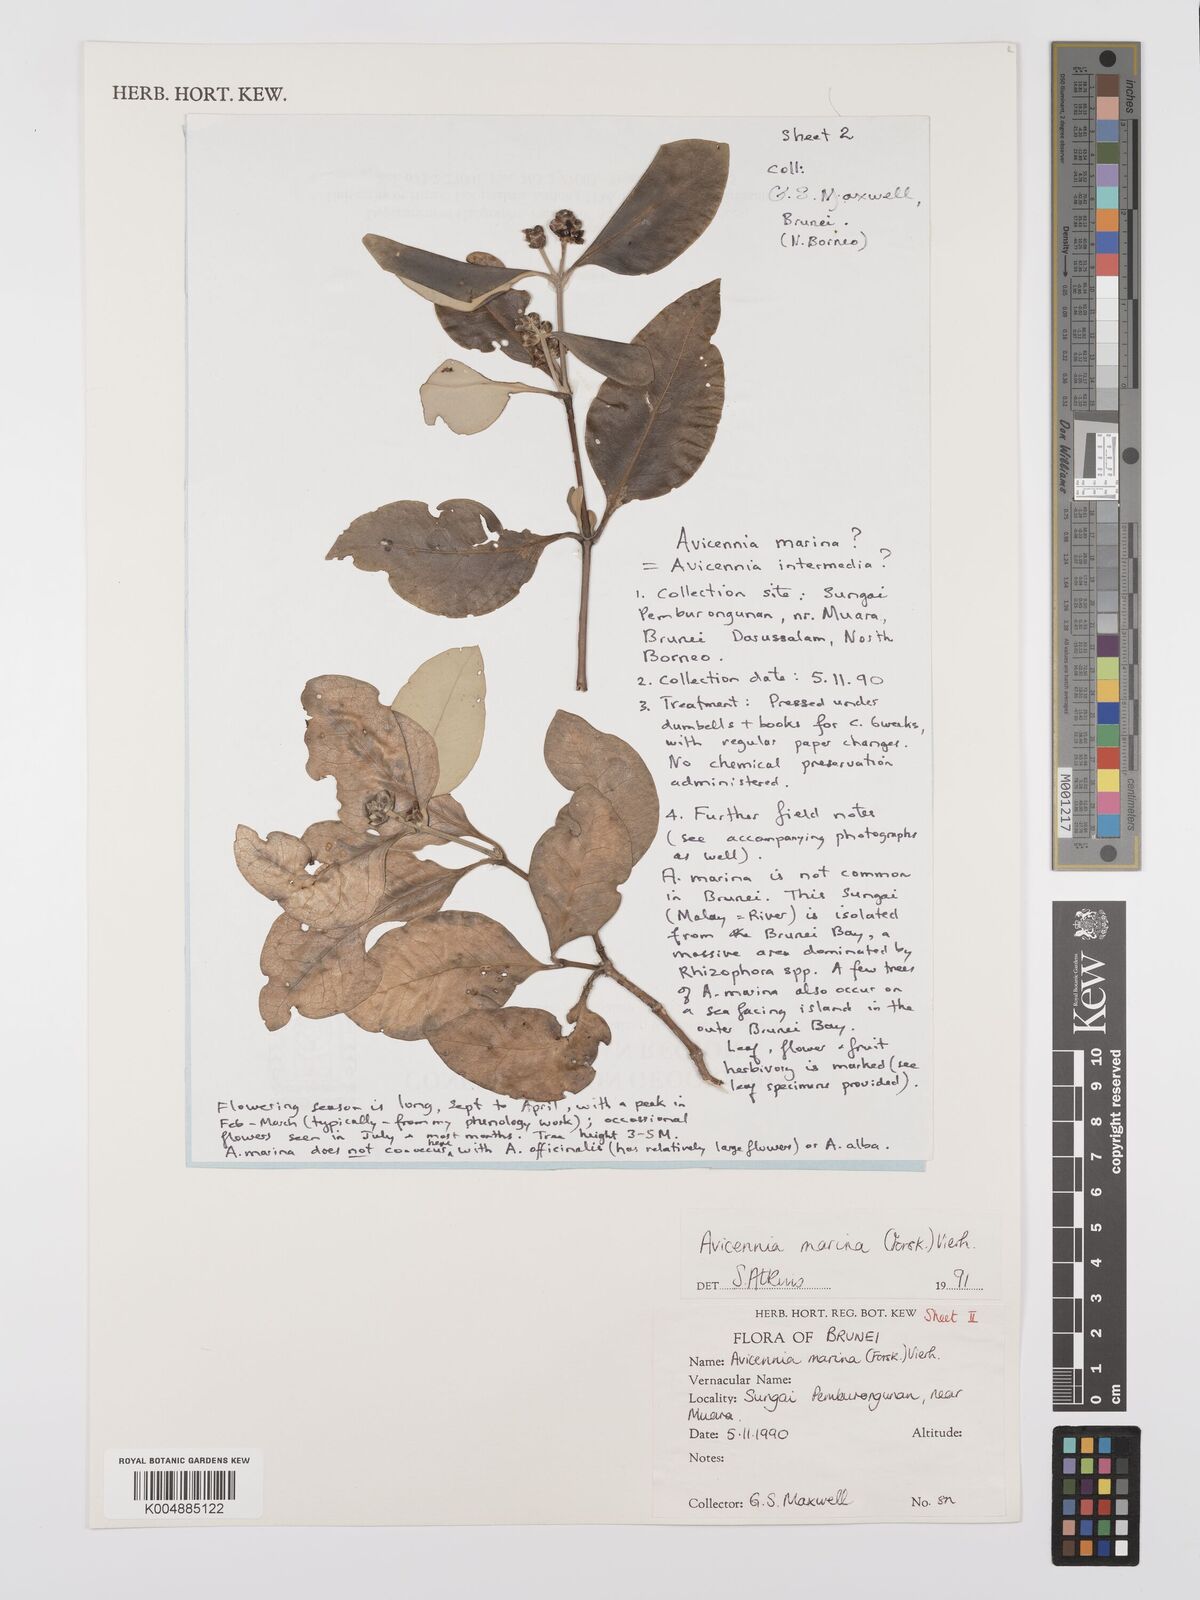 HERB. HORT. KEW.
Sheet 2
Coll:
G.S. Maxwell,
Brunei.
(N. Borneo)
Avicennia marina?
= Avicennia intermedia?
1. Collection site: Sungai
Pemburongunan, nr. Muara,
Brunei Darussalam, North
Borneo.
2. Collection date: 5.11.90
3. Treatment: Pressed under
dumbells + books for c. 6 weeks,
with regular paper changes.
No chemical preservation
administered.
4. Further field notes
(see accompanying photographs
as well).
A. marina is not common
in Brunei. This Sungai
(Malay = River) is isolated
from the Brunei Bay, a
massive area dominated by
Rhizophora spp. A few trees
of A. marina also occur on
a sea facing island in the
outer Brunei Bay.
Leaf, flower + fruit
herbivory is marked (see
leaf specimens provided).
Flowering season is long, Sept to April, with a peak in
Feb - March (typically - from my phenology work); occassional
flowers seen in July + most months. Tree height 3-5M.
A. marina does not cooccur here with A. officinalis (has relatively large flowers) or A. alba.
Avicennia marina (Forsk.) Vierh.
DET S. Atkins 1991
HERB. HORT. REG. BOT. KEW Sheet II
FLORA OF BRUNEI
Name: Avicennia marina (Forsk.) Vierh.
Vernacular Name:
Locality: Sungai Pemburongunan, near
Muara.
Date: 5.11.1990 Altitude:
Notes:
Collector: G.S. Maxwell No. sn
ROYAL BOTANIC GARDENS KEW
K004885122
inches
Density
Don Williams
M001217
centimeters
Royal Botanic Gardens
Kew
0 1 2 3 4 5 6 7 8 9 10
cm
copyright reserved